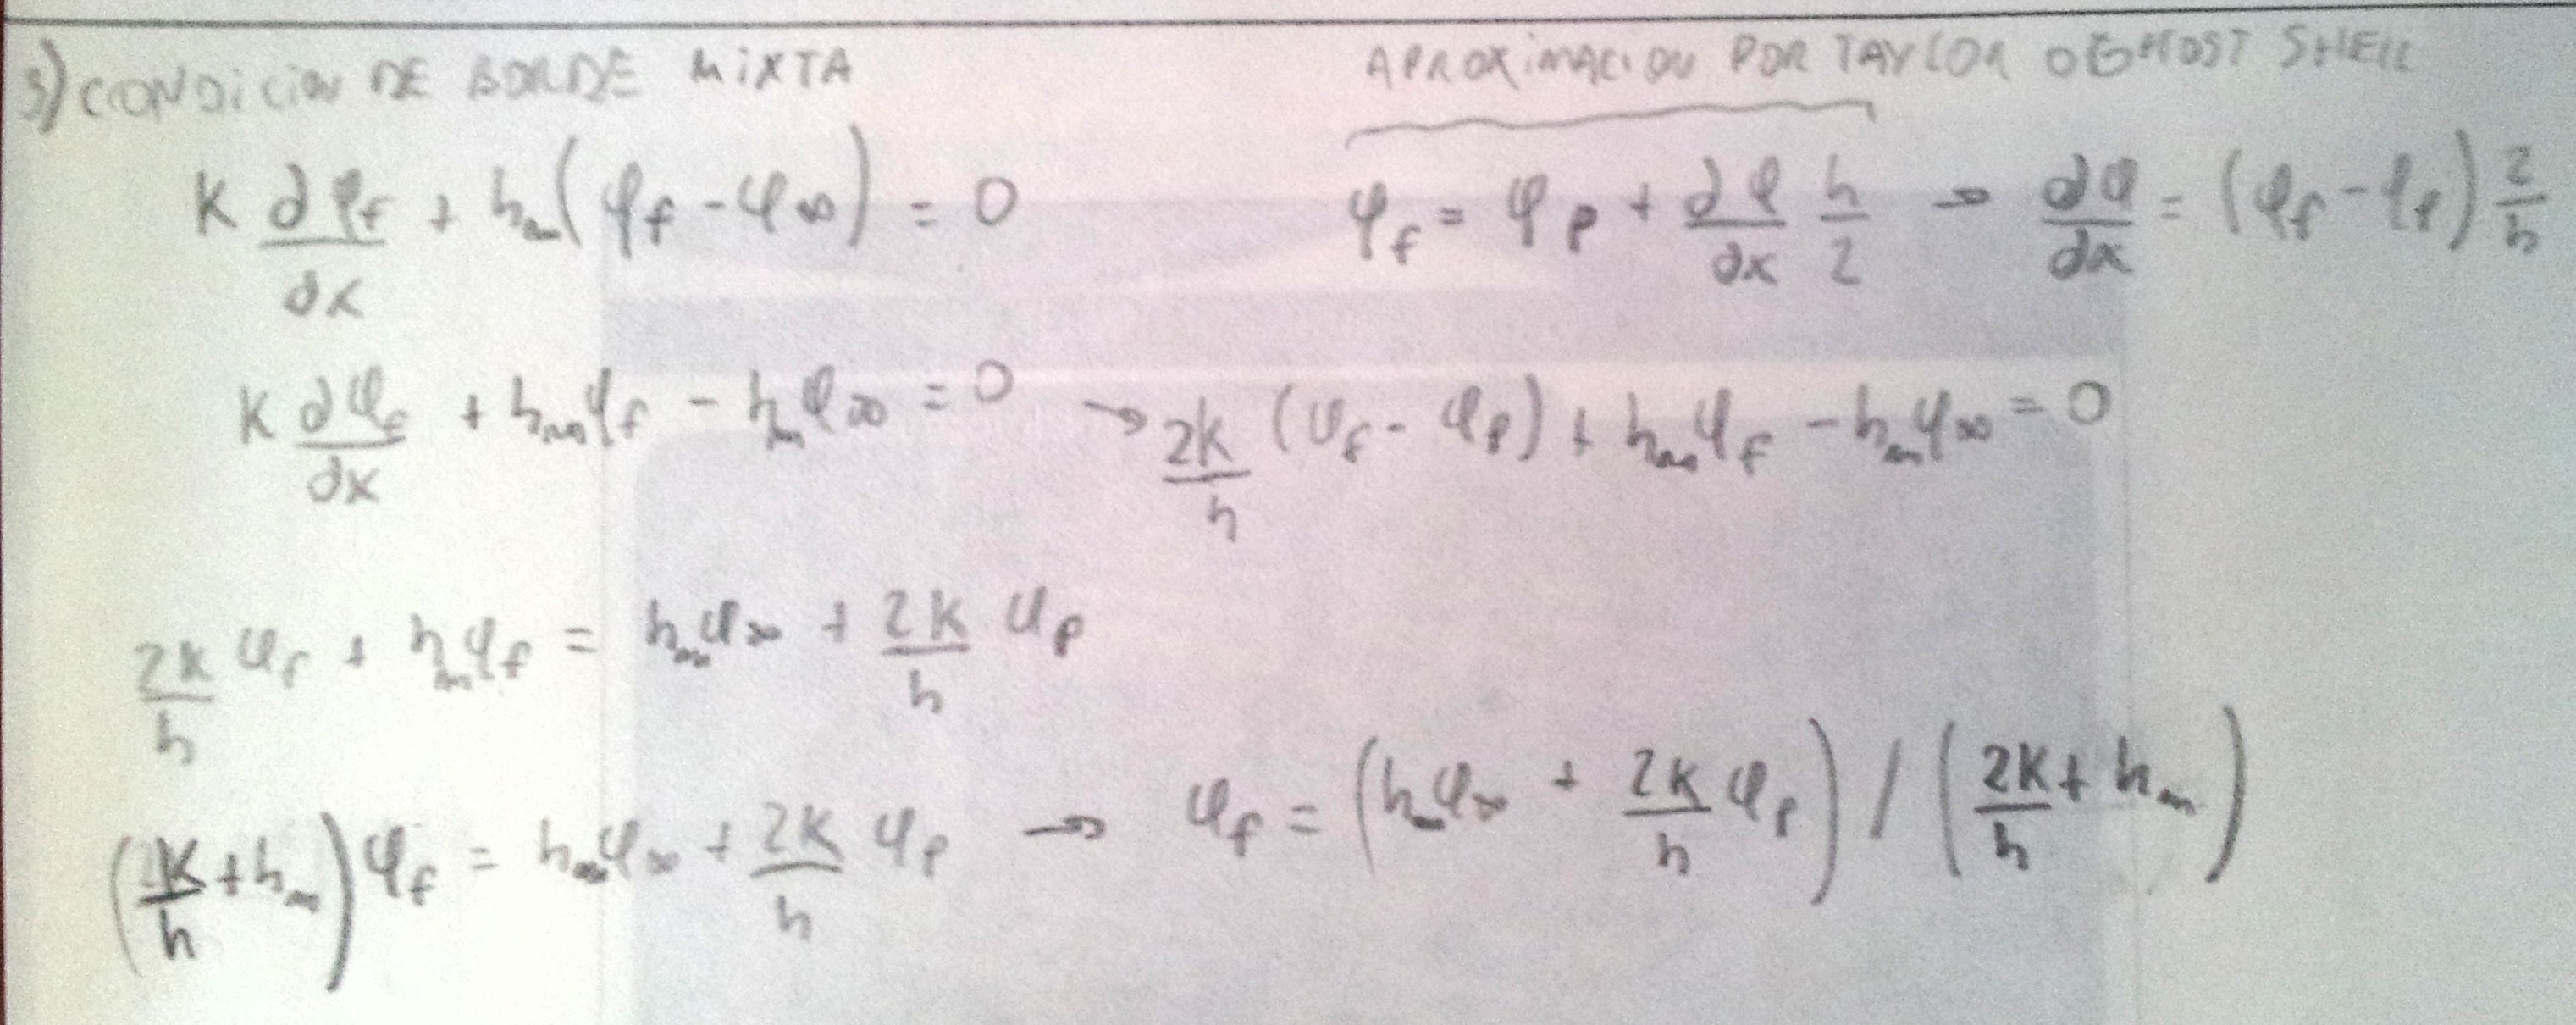 3) CONDICION DE BORDE MIXTA
APROXIMACION POR TAYLOR O GHOST SHELL
K ∂φ_f/∂x + h_m(φ_f - φ_∞) = 0
φ_f = φ_P + ∂φ/∂x h/2 → ∂φ/∂x = (φ_f - φ_P) 2/h
K ∂φ_f/∂x + h_m φ_f - h_m φ_∞ = 0 → 2K/h (φ_f - φ_P) + h_m φ_f - h_m φ_∞ = 0
2K/h φ_f + h_m φ_f = h_m φ_∞ + 2K/h φ_P
(2K/h + h_m) φ_f = h_m φ_∞ + 2K/h φ_P → φ_f = (h_m φ_∞ + 2K/h φ_P) / (2K/h + h_m)